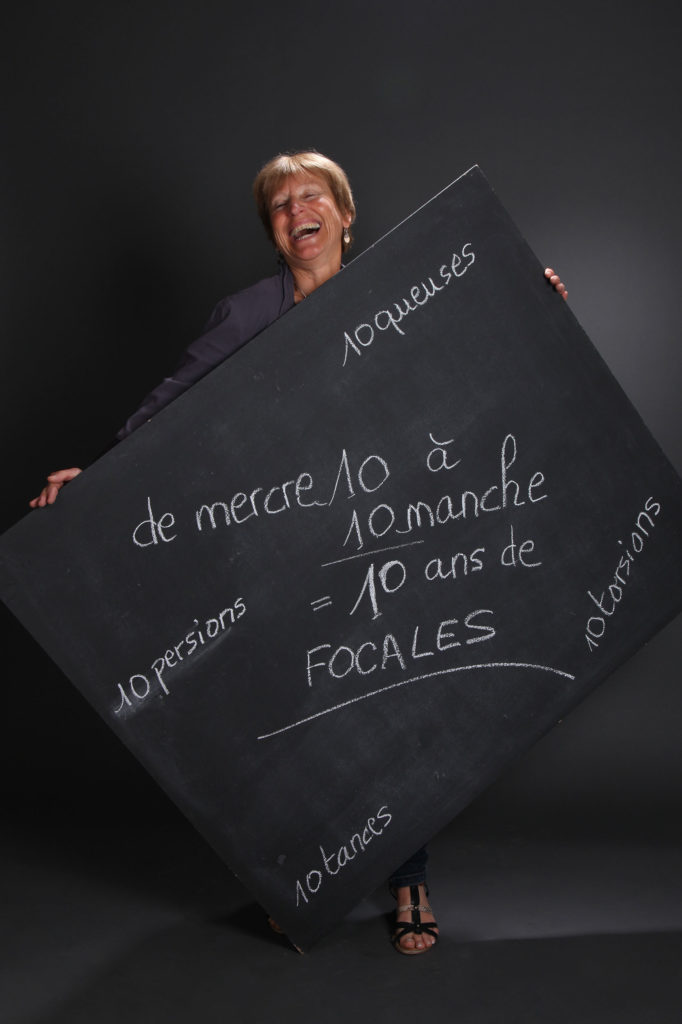 10queuses
de mercre10 à
10manche
= 10 ans de
FOCALES
10torsions
10persions
10tances